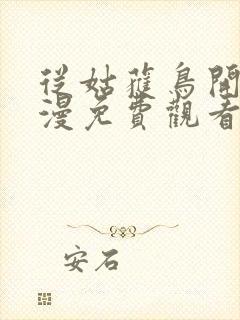 從姑蘿鳥開
漫免費觀看
安石